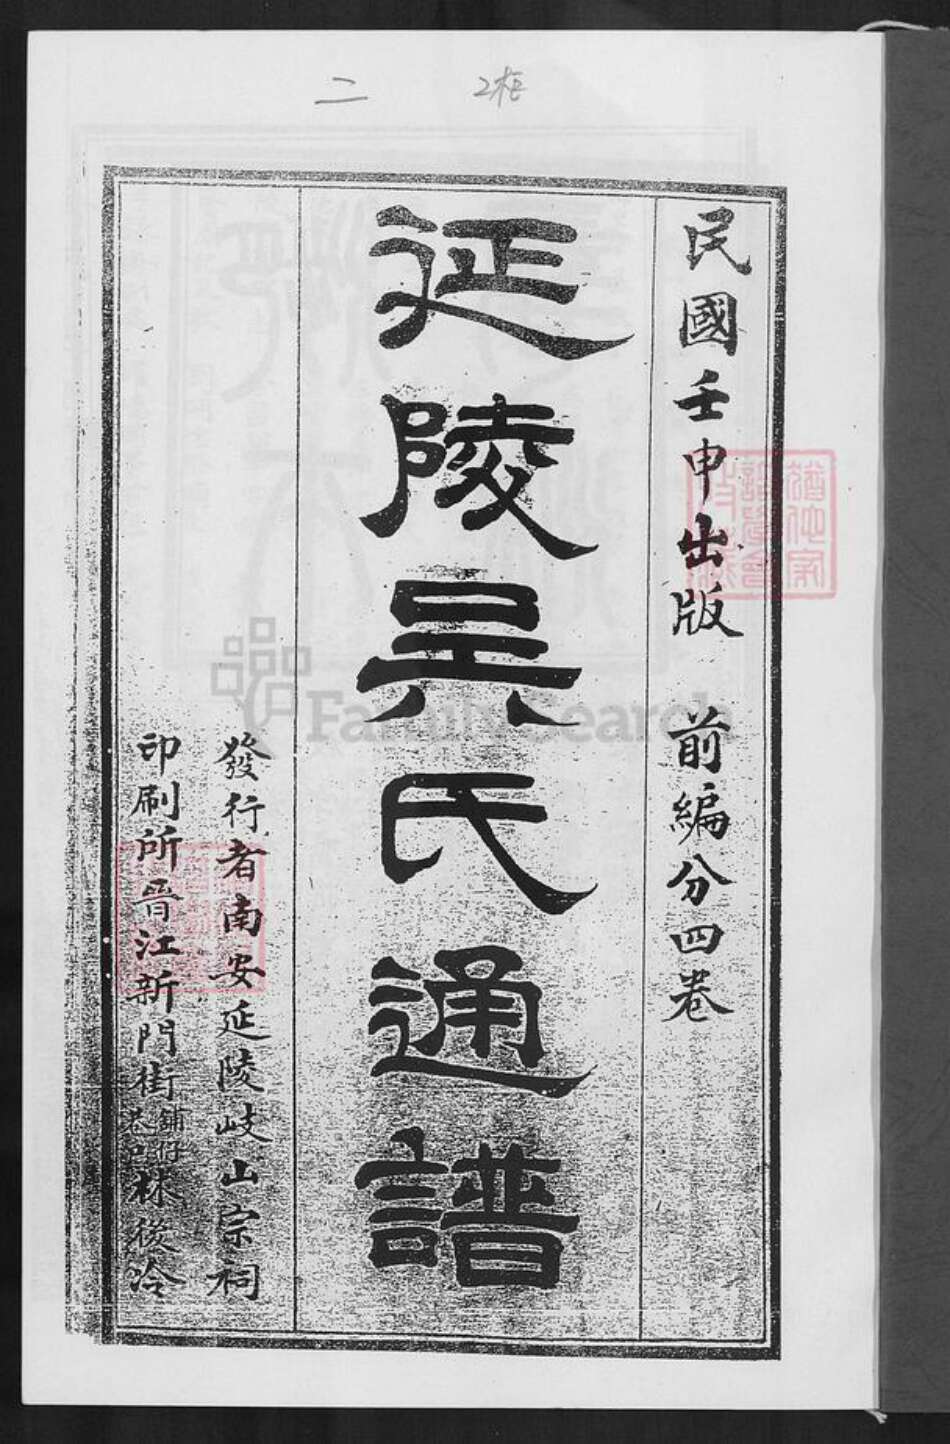 民國壬申出版 前編分四卷
延陵吳氏通譜
發行者南安延陵岐山宗祠
印刷所晉江新門街鋪仔巷口林俊冷
二
FamilySearch
猶他家譜學會